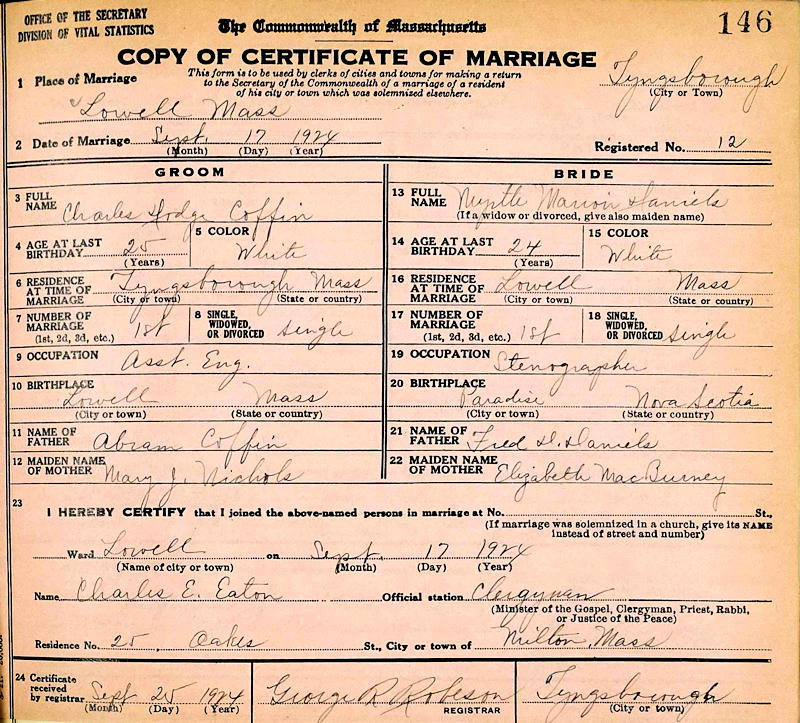 OFFICE OF THE SECRETARY
DIVISION OF VITAL STATISTICS
The Commonwealth of Massachusetts
146
COPY OF CERTIFICATE OF MARRIAGE
This form is to be used by clerks of cities and towns for making a return
to the Secretary of the Commonwealth of a marriage of a resident
of his city or town which was solemnized elsewhere.
Tyngsborough
(City or Town)
1 Place of Marriage
Lowell Mass
2 Date of Marriage Sept. 17 1924
(Month) (Day) (Year)
Registered No. 12
GROOM
3 FULL NAME Charles Hodge Coffin
4 AGE AT LAST BIRTHDAY 25 (Years)
5 COLOR White
6 RESIDENCE AT TIME OF MARRIAGE Tyngsborough Mass
(City or town) (State or country)
7 NUMBER OF MARRIAGE (1st, 2d, 3d, etc.) 1st
8 SINGLE, WIDOWED, OR DIVORCED single
9 OCCUPATION Asst. Eng.
10 BIRTHPLACE Lowell Mass
(City or town) (State or country)
11 NAME OF FATHER Abram Coffin
12 MAIDEN NAME OF MOTHER Mary J. Nichols
BRIDE
13 FULL NAME Myrtle Marion Daniels
(If a widow or divorced, give also maiden name)
14 AGE AT LAST BIRTHDAY 24 (Years)
15 COLOR White
16 RESIDENCE AT TIME OF MARRIAGE Lowell Mass
(City or town) (State or country)
17 NUMBER OF MARRIAGE (1st, 2d, 3d, etc.) 1st
18 SINGLE, WIDOWED, OR DIVORCED single
19 OCCUPATION Stenographer
20 BIRTHPLACE Paradise Nova Scotia
(City or town) (State or country)
21 NAME OF FATHER Fred D. Daniels
22 MAIDEN NAME OF MOTHER Elizabeth MacBurney
23
I HEREBY CERTIFY that I joined the above-named persons in marriage at No. St.,
(If marriage was solemnized in a church, give its NAME
instead of street and number)
Ward Lowell on Sept. 17 1924
(Name of city or town) (Month) (Day) (Year)
Name Charles E. Eaton Official station Clergyman
(Minister of the Gospel, Clergyman, Priest, Rabbi,
or Justice of the Peace)
Residence No. 25, Oakes St., City or town of Milton, Mass
24 Certificate received by registrar Sept 25 1924
(Month) (Day) (Year)
George R Robeson
REGISTRAR
Tyngsborough
(City or town)